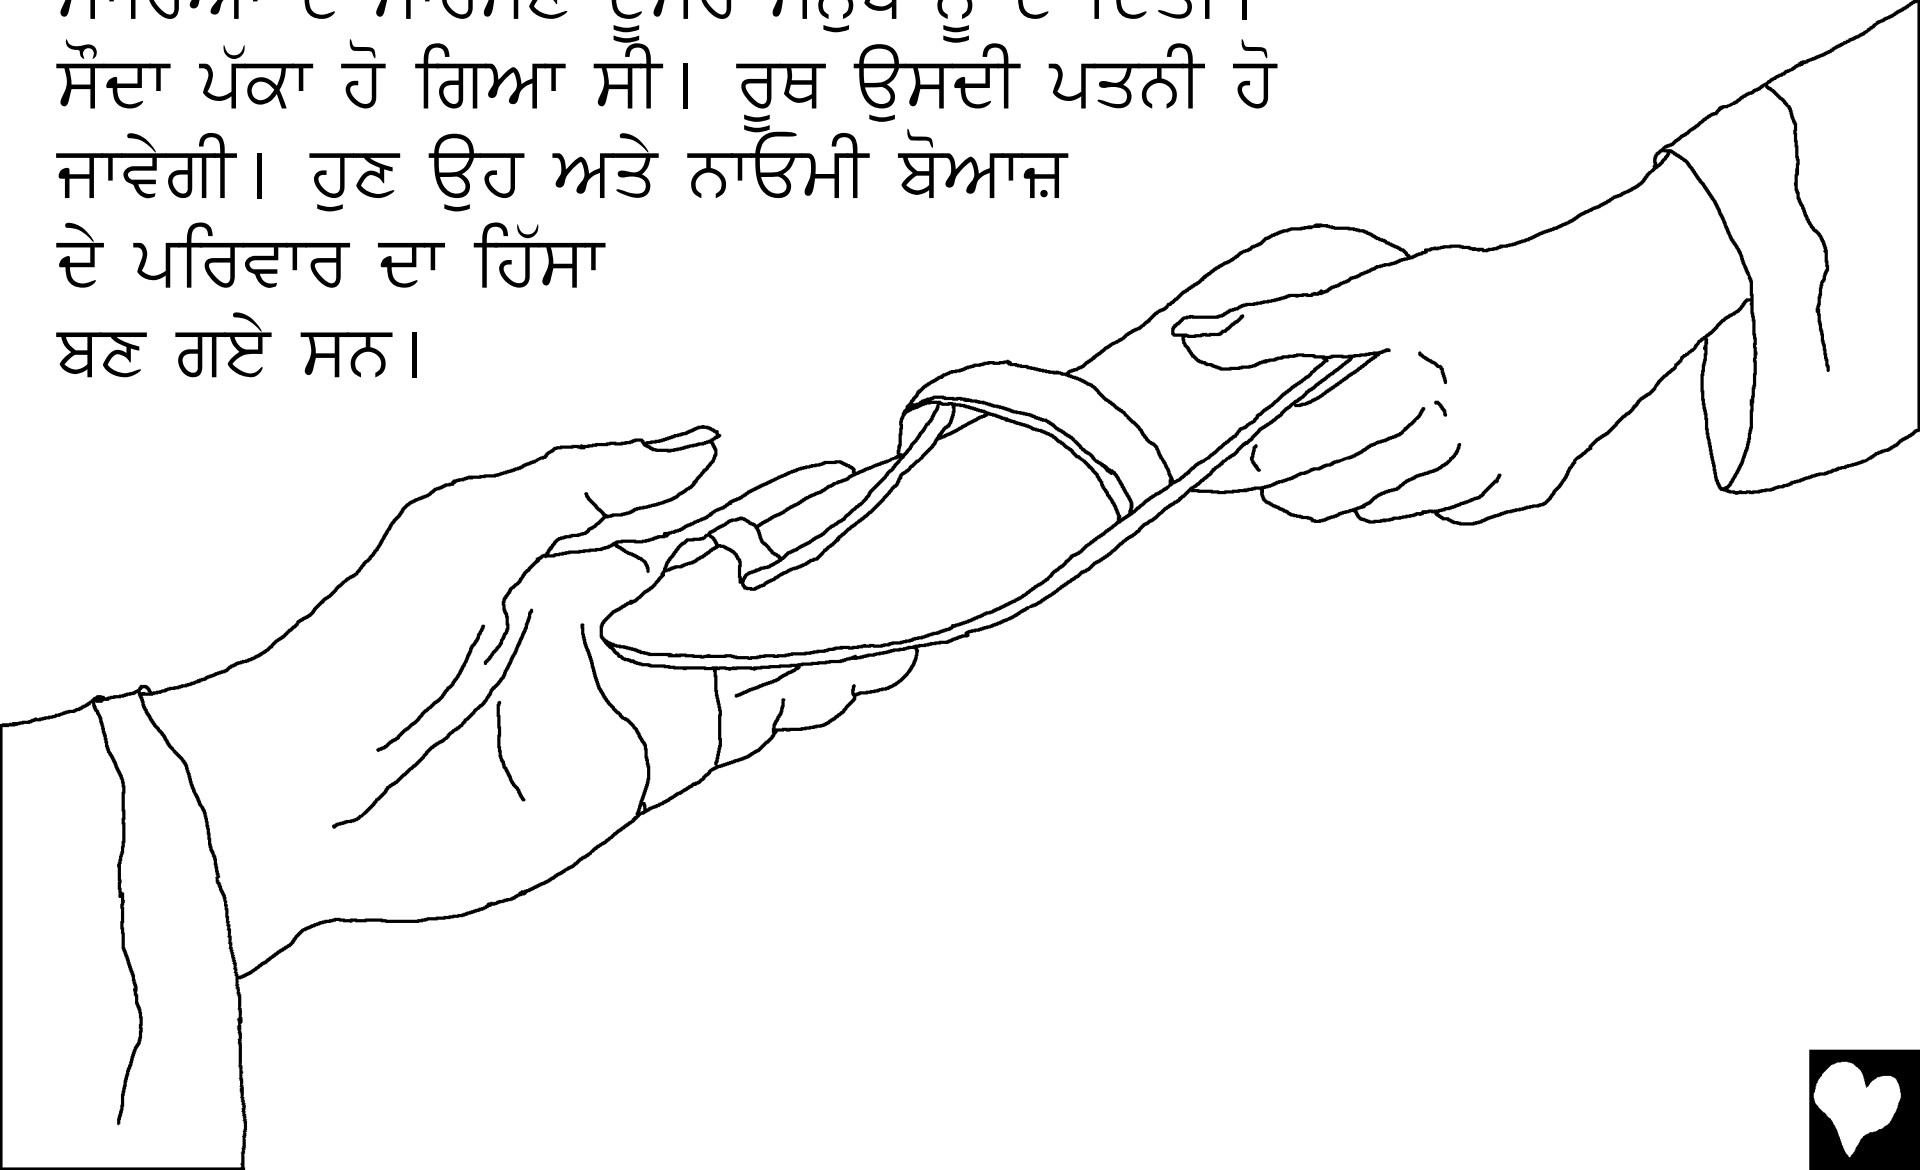 ਸੌਦਾ ਪੱਕਾ ਹੋ ਗਿਆ ਸੀ। ਰੂਥ ਉਸਦੀ ਪਤਨੀ ਹੋ
ਜਾਵੇਗੀ। ਹੁਣ ਉਹ ਅਤੇ ਨਾਓਮੀ ਬੋਆਜ਼
ਦੇ ਪਰਿਵਾਰ ਦਾ ਹਿੱਸਾ
ਬਣ ਗਏ ਸਨ।